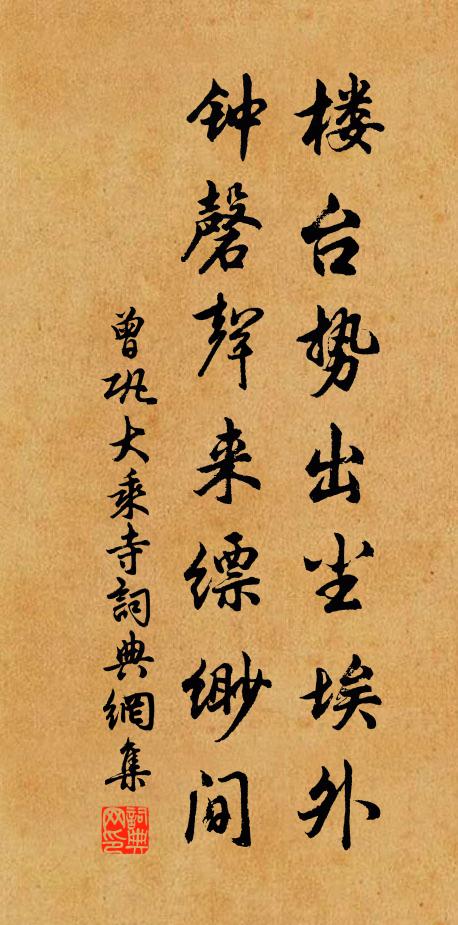 楼台势出尘埃外
钟磬聲来缥缈间
曾巩大乘寺詞典網集
詞典网印